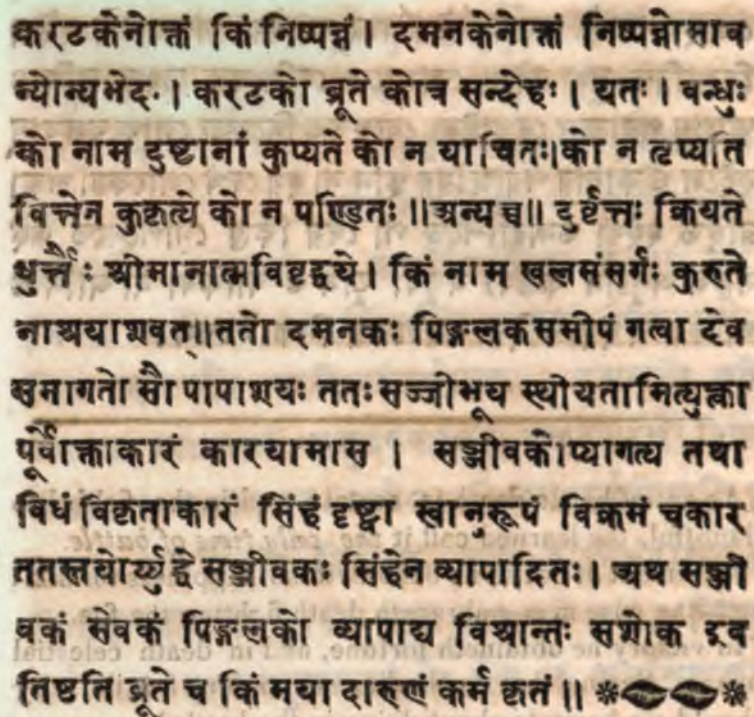 करटकेनोक्तं किं निष्पन्नं। दमनकेनोक्तं निष्पन्नोसाव
न्योन्यभेदः। करटको ब्रूते कोत्र सन्देहः। यतः। वन्धुः
को नाम दुष्टानां कुप्यते को न याचितः।को न तृप्यति
वित्तेन कुकृत्ये को न पण्डितः॥अन्यच्च॥ दुर्वृत्तः क्रियते
धुर्त्तैः श्रीमानात्मविवृद्धये। किं नाम खलसंसर्गः कुरुते
नाश्रयाशवत्॥ततो दमनकः पिङ्गलकसमीपं गत्वा देव
समागतो सौ पापाशयः ततः सज्जीभूय स्थीयतामित्युक्त्वा
पूर्वोक्ताकारं कारयामास। सञ्जीवकोप्यागत्य तथा
विधं विकृताकारं सिंहं दृष्ट्वा स्वानुरूपं विक्रमं चकार
ततस्तयोर्य्युद्धे सञ्जीवकः सिंहेन व्यापादितः। अथ सञ्जी
वकं सेवकं पिङ्गलको व्यापाद्य विश्रान्तः सशोक इव
तिष्टति ब्रूते च किं मया दारुणं कर्म कृतं॥